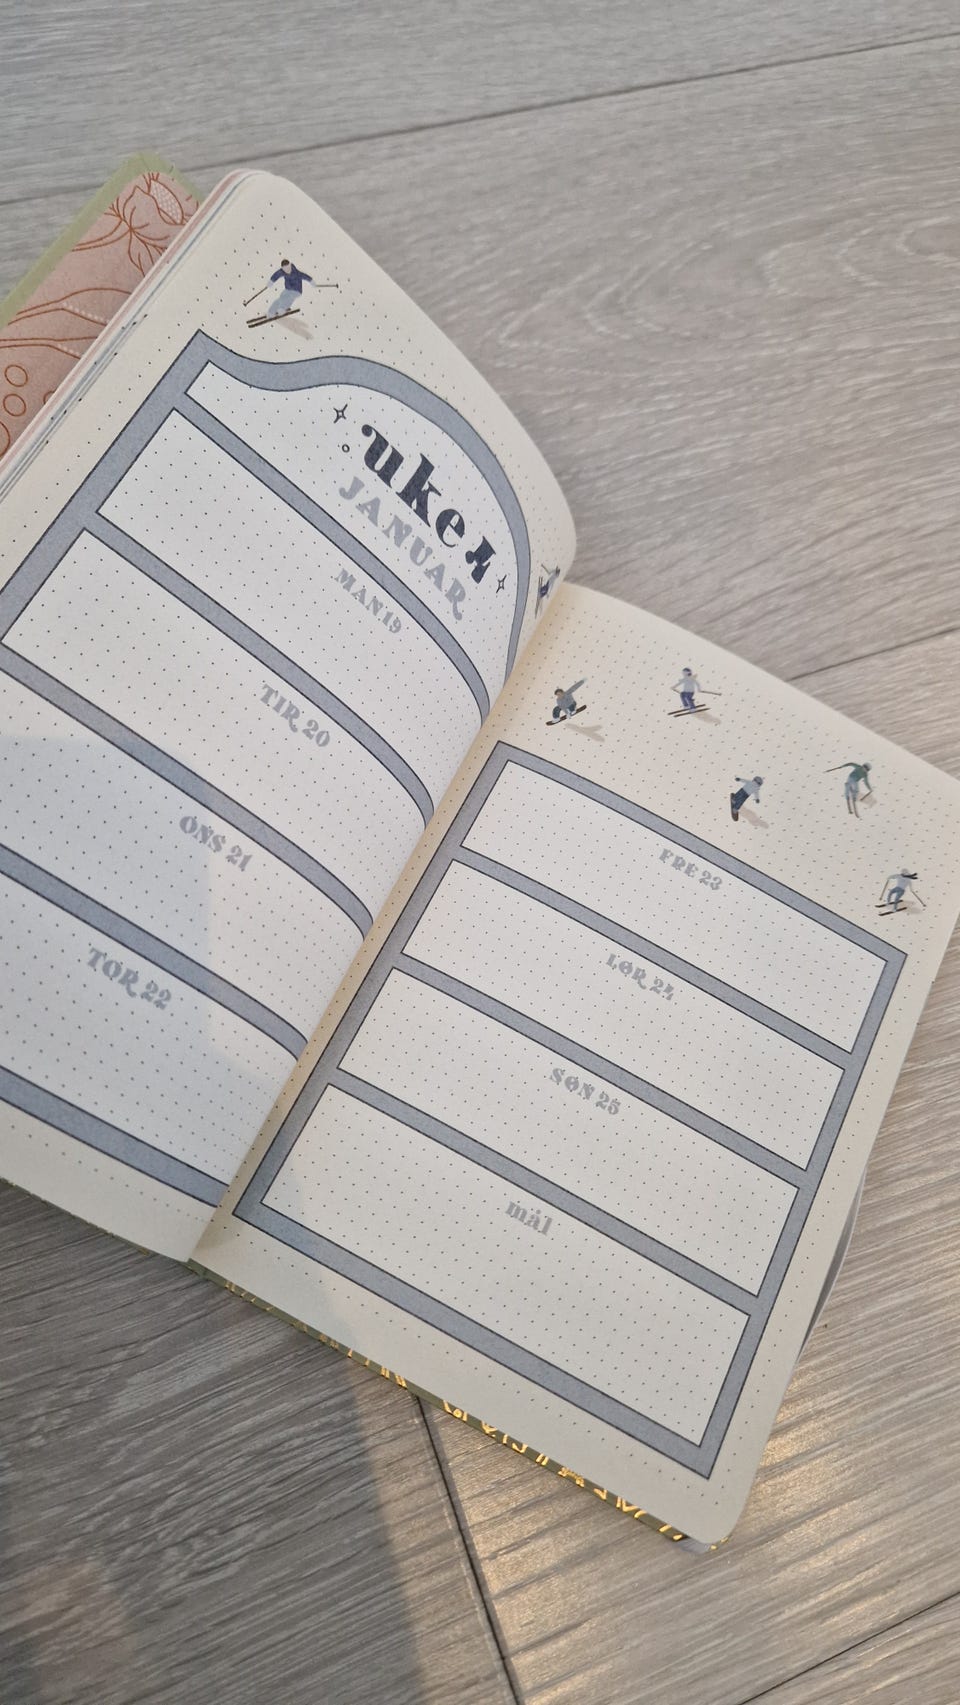 uke 4
JANUAR
MAN 19
TIR 20
ONS 21
TOR 22
FRE 23
LØR 24
SØN 25
mål